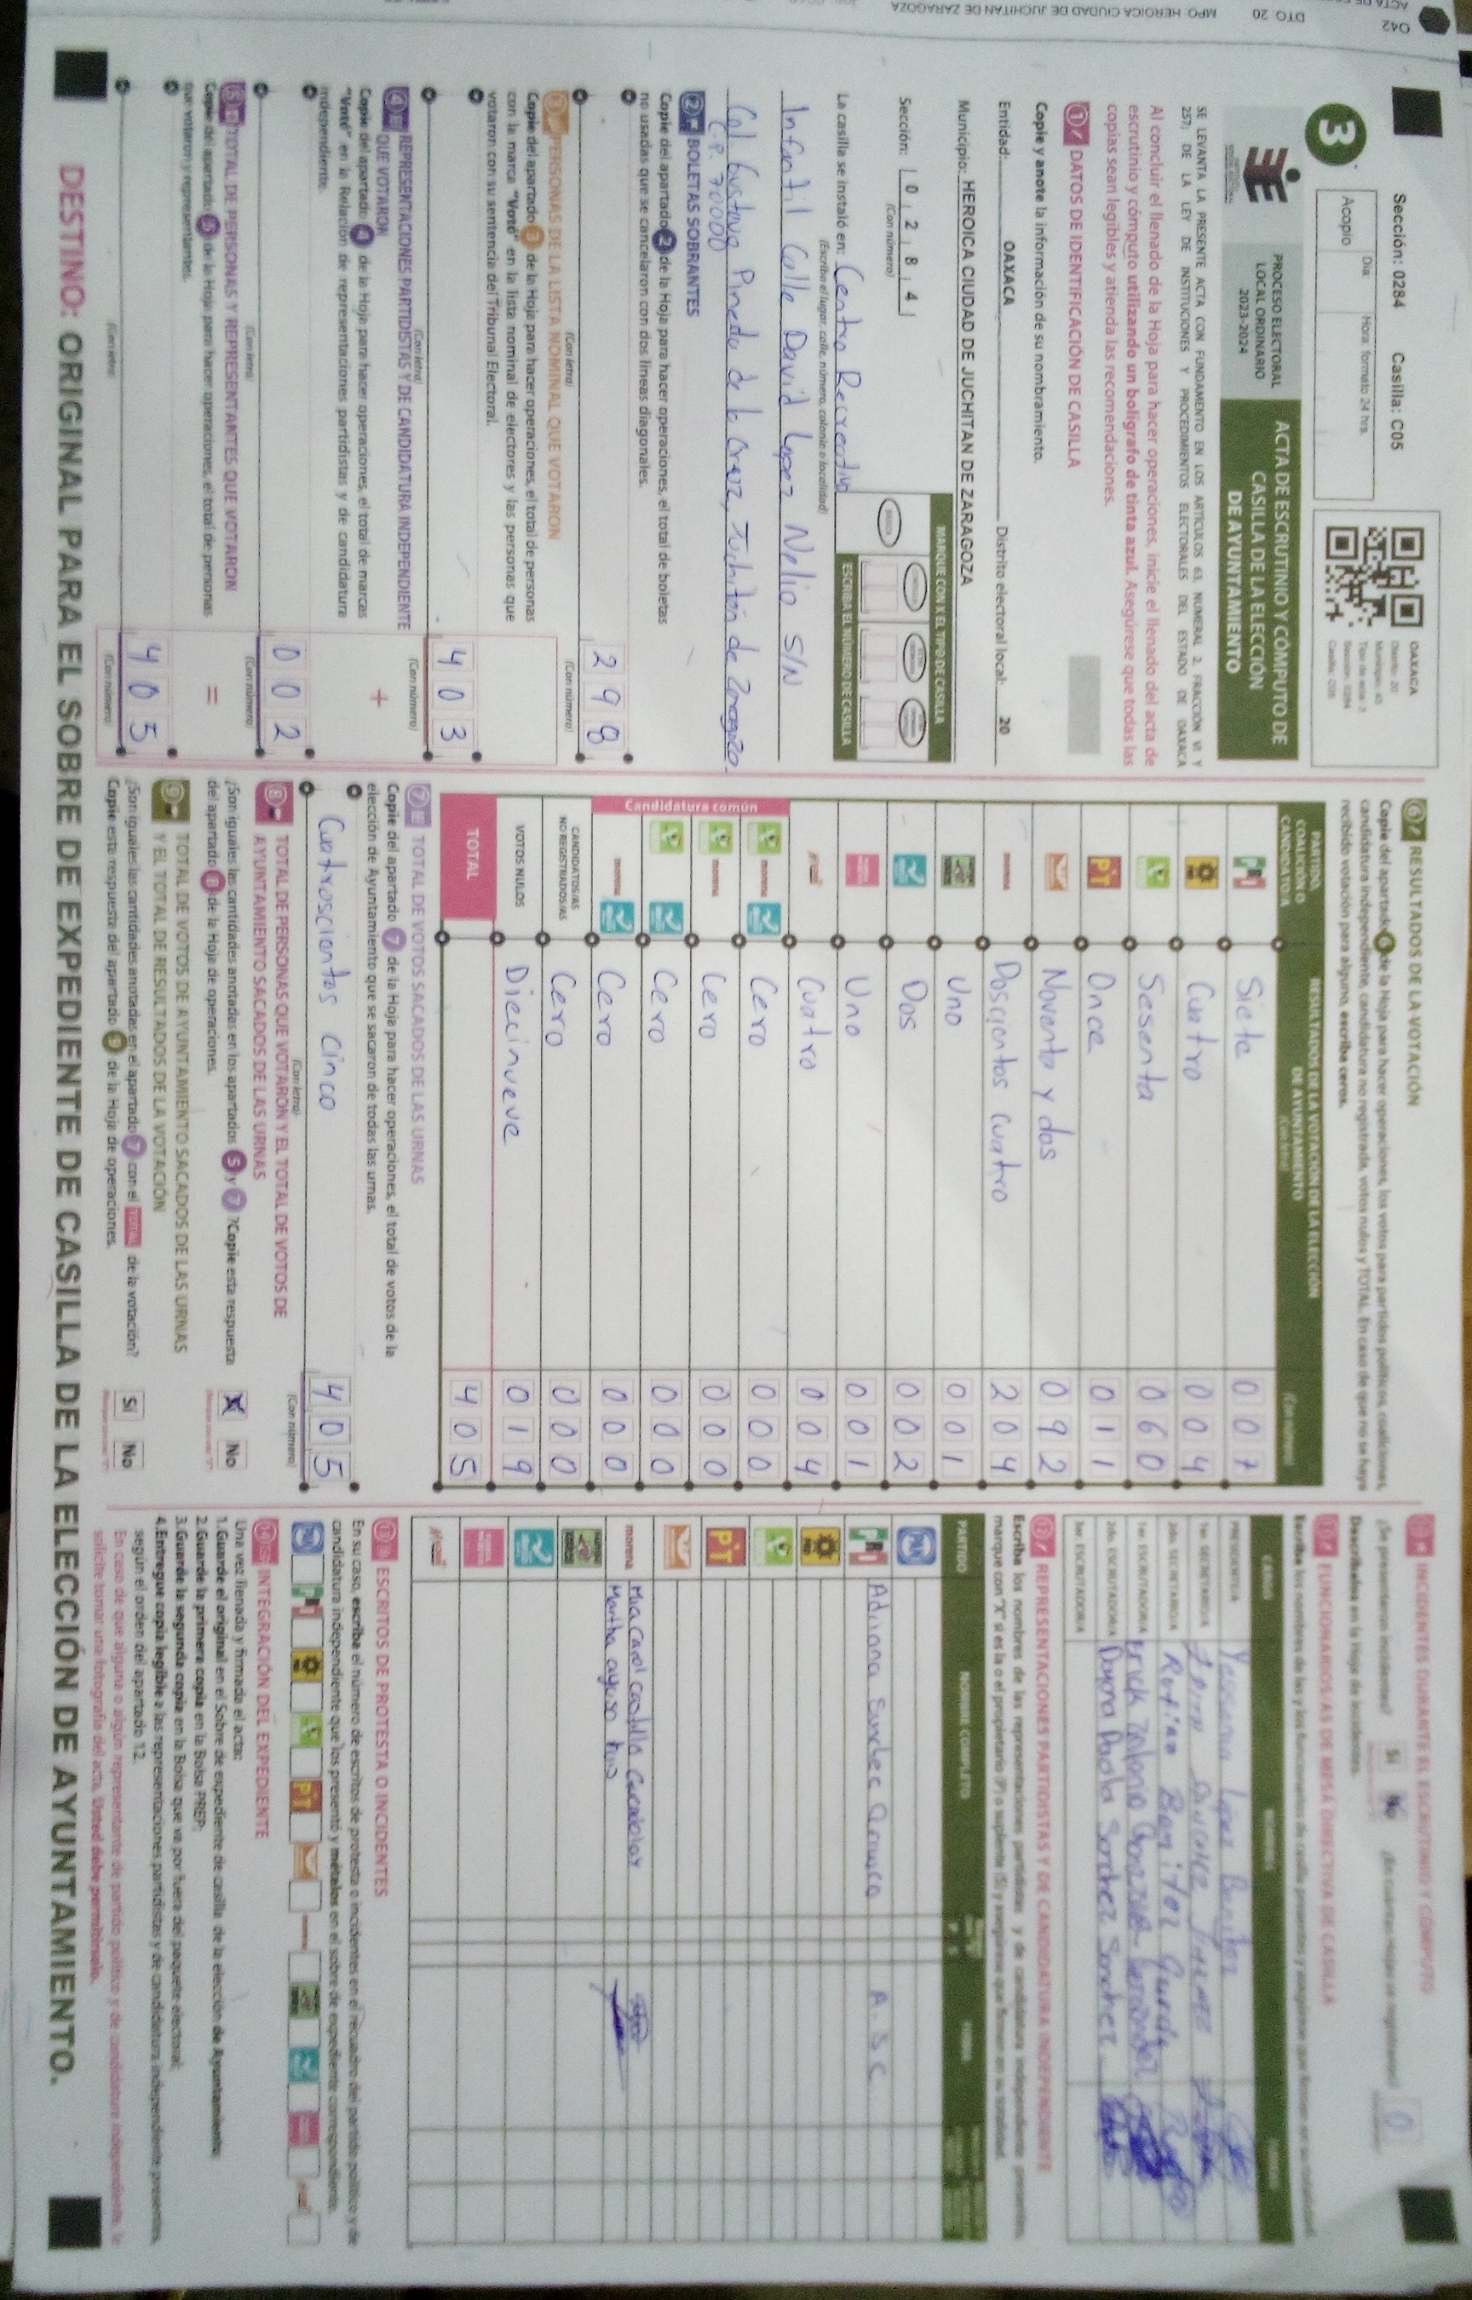 Sección: 0284 Casilla: C05
Día: Hora: formato 24 hrs.
Acopio
3
OAXACA
PROCESO ELECTORAL
LOCAL ORDINARIO
2023-2024
ACTA DE ESCRUTINIO Y CÓMPUTO DE
CASILLA DE LA ELECCIÓN
DE AYUNTAMIENTO
SE LEVANTA LA PRESENTE ACTA CON FUNDAMENTO EN LOS ARTÍCULOS 63, NUMERAL 2, FRACCIÓN VI Y
257; DE LA LEY DE INSTITUCIONES Y PROCEDIMIENTOS ELECTORALES DEL ESTADO DE OAXACA
Al concluir el llenado de la Hoja para hacer operaciones, inicie el llenado del acta de
escrutinio y cómputo utilizando un bolígrafo de tinta azul. Asegúrese que todas las
copias sean legibles y atienda las recomendaciones.
1 DATOS DE IDENTIFICACIÓN DE CASILLA
Copie y anote la información de su nombramiento.
Entidad: OAXACA Distrito electoral local: 20
Municipio: HEROICA CIUDAD DE JUCHITAN DE ZARAGOZA
Sección: 0 2 8 4
(Con número)
MARQUE CON X EL TIPO DE CASILLA
ESCRIBA EL NÚMERO DE CASILLA
La casilla se instaló en: Centro Recreativo
(Escriba el lugar, calle, número, colonia o localidad)
Infantil Calle David Lopez Nelio S/N
Col Gustavo Pineda de la Cruz, Juchitán de Zaragoza
C.P. 70000
2 BOLETAS SOBRANTES
Copie del apartado 2 de la Hoja para hacer operaciones, el total de boletas
no usadas que se cancelaron con dos líneas diagonales.
298
(Con letra) (Con número)
3 PERSONAS DE LA LISTA NOMINAL QUE VOTARON
Copie del apartado 3 de la Hoja para hacer operaciones, el total de personas
con la marca "Votó" en la lista nominal de electores y las personas que
votaron con su sentencia del Tribunal Electoral.
403
(Con letra) (Con número)
4 REPRESENTACIONES PARTIDISTAS Y DE CANDIDATURA INDEPENDIENTE
QUE VOTARON
+
Copie del apartado 4 de la Hoja para hacer operaciones, el total de marcas
"Votó" en la Relación de representaciones partidistas y de candidatura
independiente.
002
(Con letra) (Con número)
5 TOTAL DE PERSONAS Y REPRESENTANTES QUE VOTARON
=
Copie del apartado 5 de la Hoja para hacer operaciones, el total de personas
que votaron y representantes.
405
(Con letra) (Con número)
6 RESULTADOS DE LA VOTACIÓN
Copie del apartado 6 de la Hoja para hacer operaciones, los votos para partidos políticos, coaliciones,
candidatura independiente, candidatura no registrada, votos nulos y TOTAL. En caso de que no se haya
recibido votación para alguno, escriba ceros.
PARTIDO, COALICIÓN O CANDIDATO/A
RESULTADOS DE LA VOTACIÓN DE LA ELECCIÓN
DE AYUNTAMIENTO
(Con letra) (Con número)
PRI Siete 007
Cuatro 004
Sesenta 060
PT Once 011
Noventa y dos 092
morena Doscientos cuatro 204
Uno 001
Dos 002
Uno 001
Cuatro 004
Candidatura común
morena Cero 000
morena Cero 000
Cero 000
morena Cero 000
CANDIDATOS/AS
NO REGISTRADOS/AS Cero 000
VOTOS NULOS Diecinueve 019
TOTAL 405
7 TOTAL DE VOTOS SACADOS DE LAS URNAS
Copie del apartado 7 de la Hoja para hacer operaciones, el total de votos de la
elección de Ayuntamiento que se sacaron de todas las urnas.
Cuatroscientos cinco 405
(Con letra) (Con número)
8 TOTAL DE PERSONAS QUE VOTARON Y EL TOTAL DE VOTOS DE
AYUNTAMIENTO SACADOS DE LAS URNAS
¿Son iguales las cantidades anotadas en los apartados 5 y 7? Copie esta respuesta
del apartado 8 de la Hoja de operaciones.
X No
9 TOTAL DE VOTOS DE AYUNTAMIENTO SACADOS DE LAS URNAS
Y EL TOTAL DE RESULTADOS DE LA VOTACIÓN
¿Son iguales las cantidades anotadas en el apartado 7 con el TOTAL de la votación?
Copie esta respuesta del apartado 9 de la Hoja de operaciones.
Sí No
INCIDENTES DURANTE EL ESCRUTINIO Y CÓMPUTO
¿Se presentaron incidentes? Sí No 0
Descríbalos en la Hoja de incidentes.
FUNCIONARIOS/AS DE MESA DIRECTIVA DE CASILLA
PRESIDENTE/A
1er. SECRETARIO/A
2do. SECRETARIO/A
1er. ESCRUTADOR/A
2do. ESCRUTADOR/A Dayana Paola Sanchez Sanchez
3er. ESCRUTADOR/A
12 REPRESENTACIONES PARTIDISTAS Y DE CANDIDATURA INDEPENDIENTE
Escriba los nombres de las representaciones partidistas y de candidatura independiente presentes,
marque con "X" si es la o el propietario (P) o suplente (S) y asegúrese que firmen en su totalidad.
PARTIDO NOMBRE COMPLETO
PAN
PRI Adriana Sanchez A. S C
PT
morena
13 ESCRITOS DE PROTESTA O INCIDENTES
En su caso, escriba el número de escritos de protesta o incidentes en el recuadro del partido político y de
candidatura independiente que los presentó y métalos en el sobre de expediente correspondiente.
14 INTEGRACIÓN DEL EXPEDIENTE
Una vez llenada y firmada el acta:
1. Guarde el original en el Sobre de expediente de casilla de la elección de Ayuntamiento;
2. Guarde la primera copia en la Bolsa PREP;
3. Guarde la segunda copia en la Bolsa que va por fuera del paquete electoral;
4. Entregue copia legible a las representaciones partidistas y de candidatura independiente presentes,
según el orden del apartado 12.
En caso de que alguna o algún representante de partido político y de candidatura independiente, le
solicite tomar una fotografía del acta, Usted debe permitírselo.
DESTINO: ORIGINAL PARA EL SOBRE DE EXPEDIENTE DE CASILLA DE LA ELECCIÓN DE AYUNTAMIENTO.
042
DTO: 20
MPO: HEROICA CIUDAD DE JUCHITAN DE ZARAGOZA